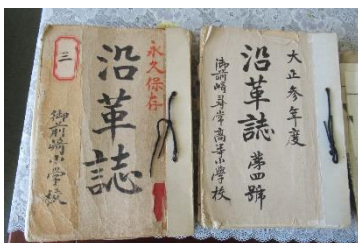 永久保存
三
沿革誌
御前崎小學校
大正参年度
沿革誌 第四號
御前崎尋常高等小學校